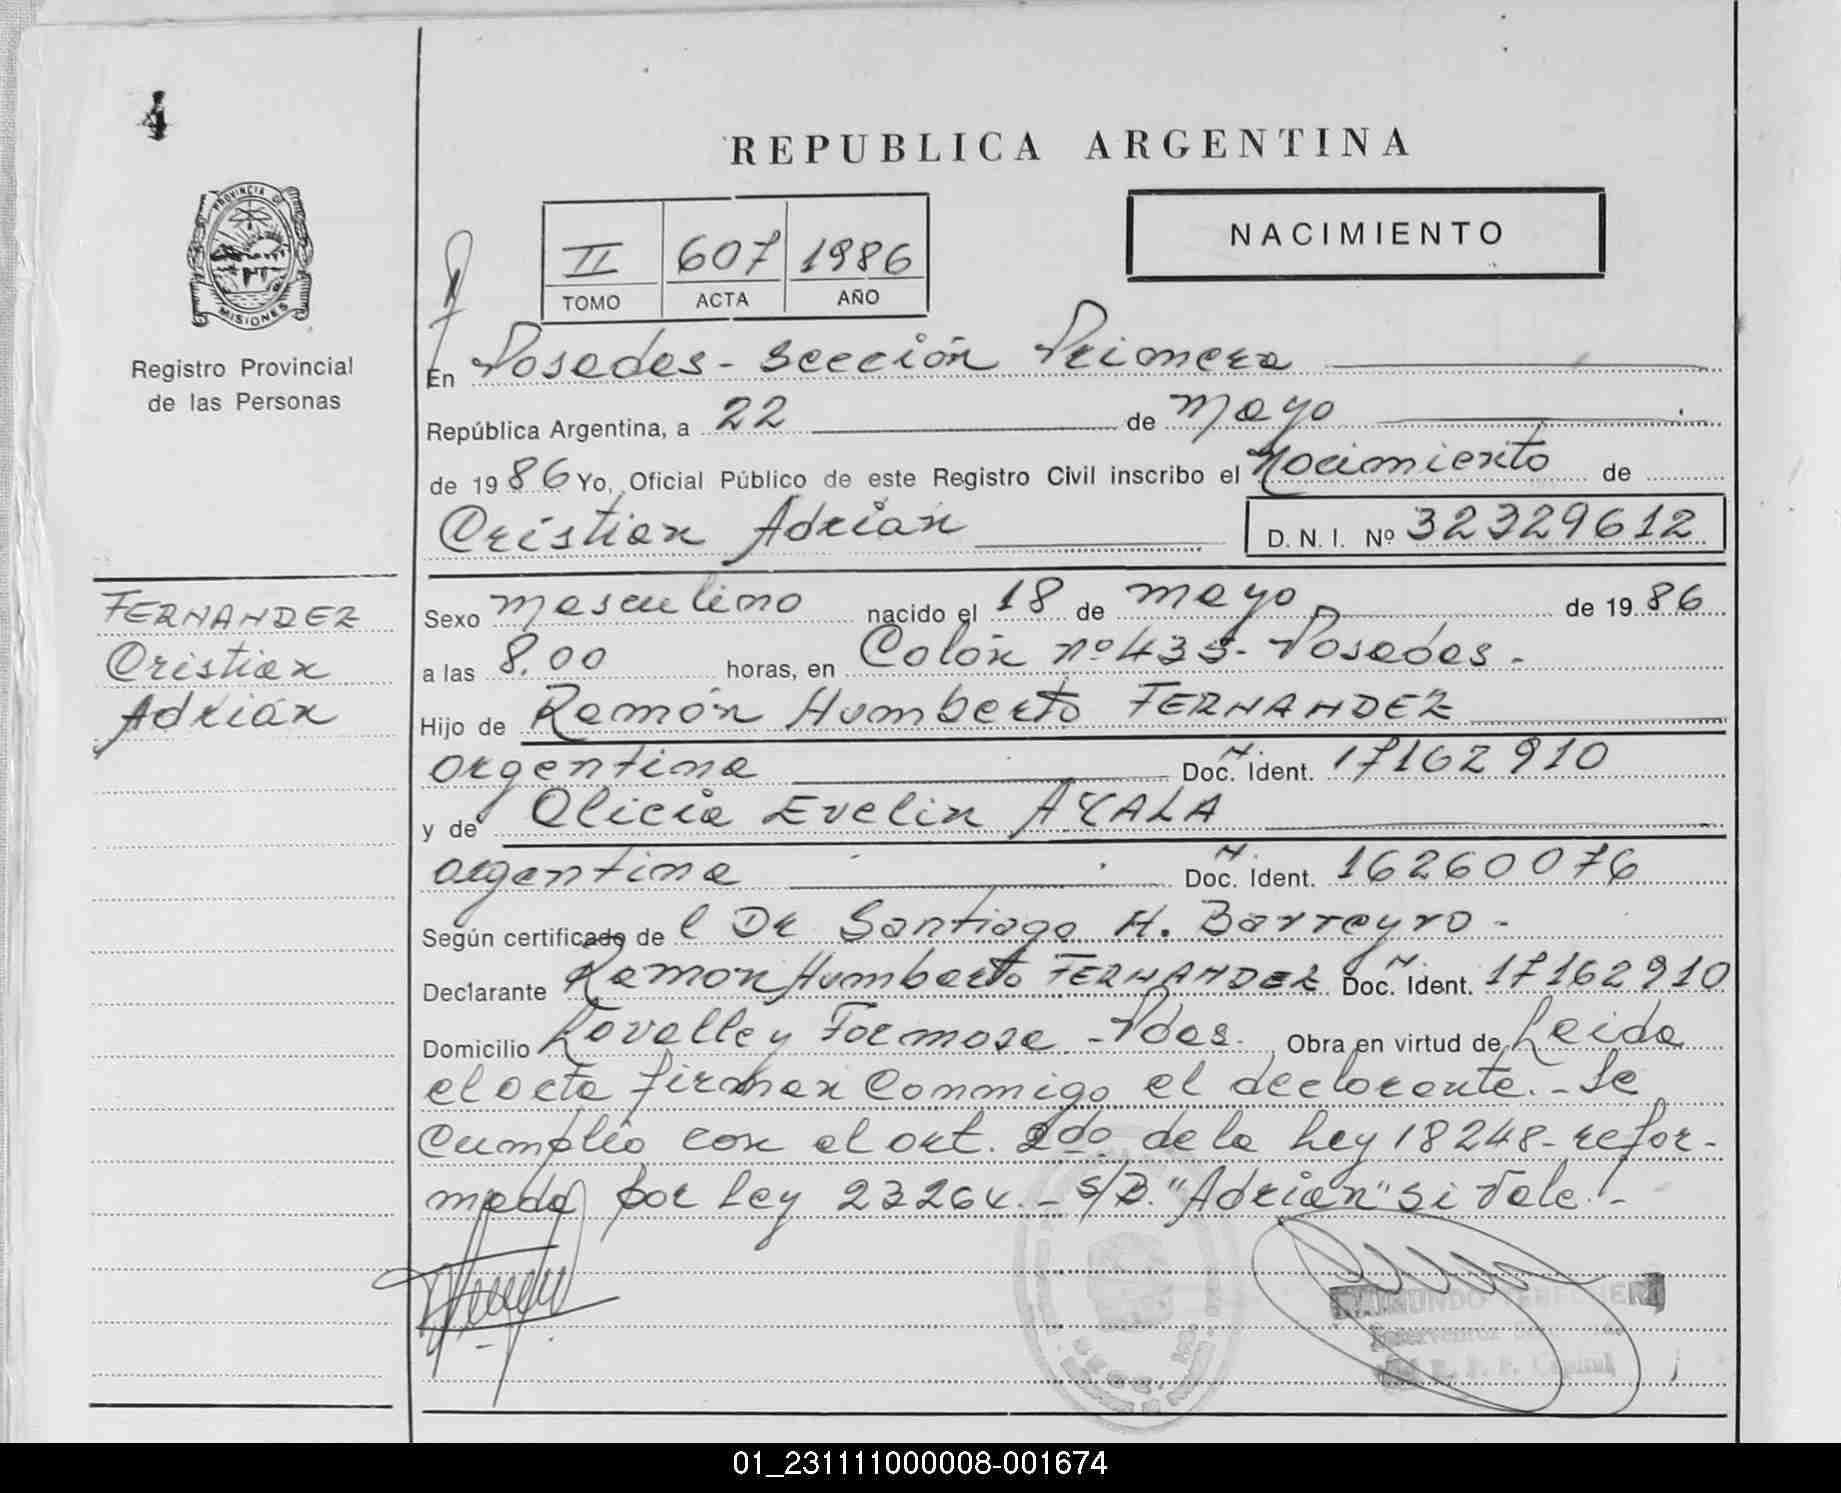 REPUBLICA ARGENTINA
II 607 1986
TOMO ACTA AÑO
NACIMIENTO
PROVINCIA DE
MISIONES
Registro Provincial
de las Personas
FERNANDEZ
Cristian
Adrián
En Posadas - Sección Primera
República Argentina, a 22 de mayo
de 1986 Yo, Oficial Público de este Registro Civil inscribo el Nacimiento de
Cristian Adrián D. N. I. Nº 32329612
Sexo masculino nacido el 18 de mayo de 1986
a las 8.00 horas, en Colón nº 435 - Posadas -
Hijo de Ramón Humberto FERNANDEZ
argentina Doc. Ident. 17162910
y de Alicia Evelin AYALA
argentina Doc. Ident. 16260076
Según certificado de l Dr Santiago H. Barreyro -
Declarante Ramón Humberto FERNANDEZ Doc. Ident. 17162910
Domicilio Lavalle y Formosa - Pdas. Obra en virtud de Leida
el acta firman Conmigo el declarante. - Se
Cumplio con el art. 2do de la Ley 18248 - refor-
mada por Ley 23264. - S/B. "Adrian" Si Vale. -
01_231111000008-001674